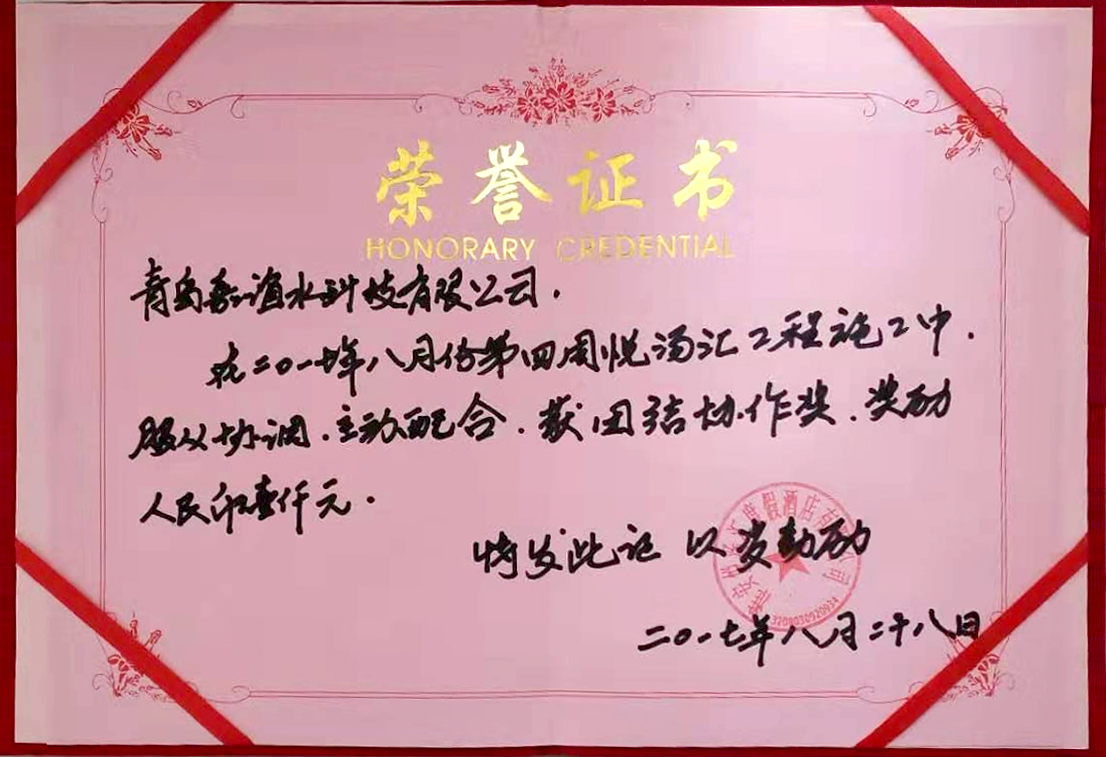 荣誉证书
HONORARY CREDENTIAL
青岛嘉谊水科技有限公司.
在二〇一七年八月份第四周悦汤汇工程施工中.
服从协调.主动配合.获团结协作奖.奖励
人民币壹仟元.
特发此证 以资勉励
度假酒店有限公司
3208030920934
二〇一七年八月二十八日